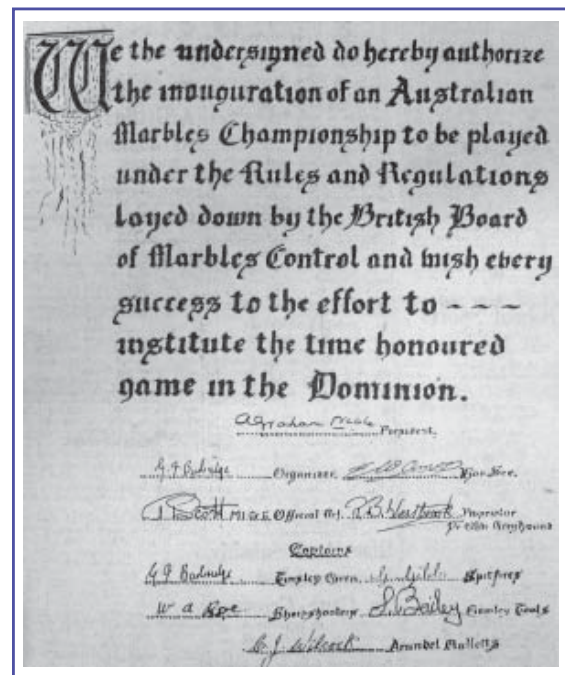 We the undersigned do hereby authorize
the inouguration of an Australian
Marbles Championship to be played
under the Rules and Regulations
layed down by the British Board
of Marbles Control and wish every
success to the effort to - - - -
institute the time honoured
game in the Dominion.
President.
Organizer. Hon Sec.
Official Ref. Proprietor
Greyhound
Captains
Tinsley Green. Spitfires
W A Sharpshooters L. Bailey Tools
C. J. Wilcock Arundel Mulletts